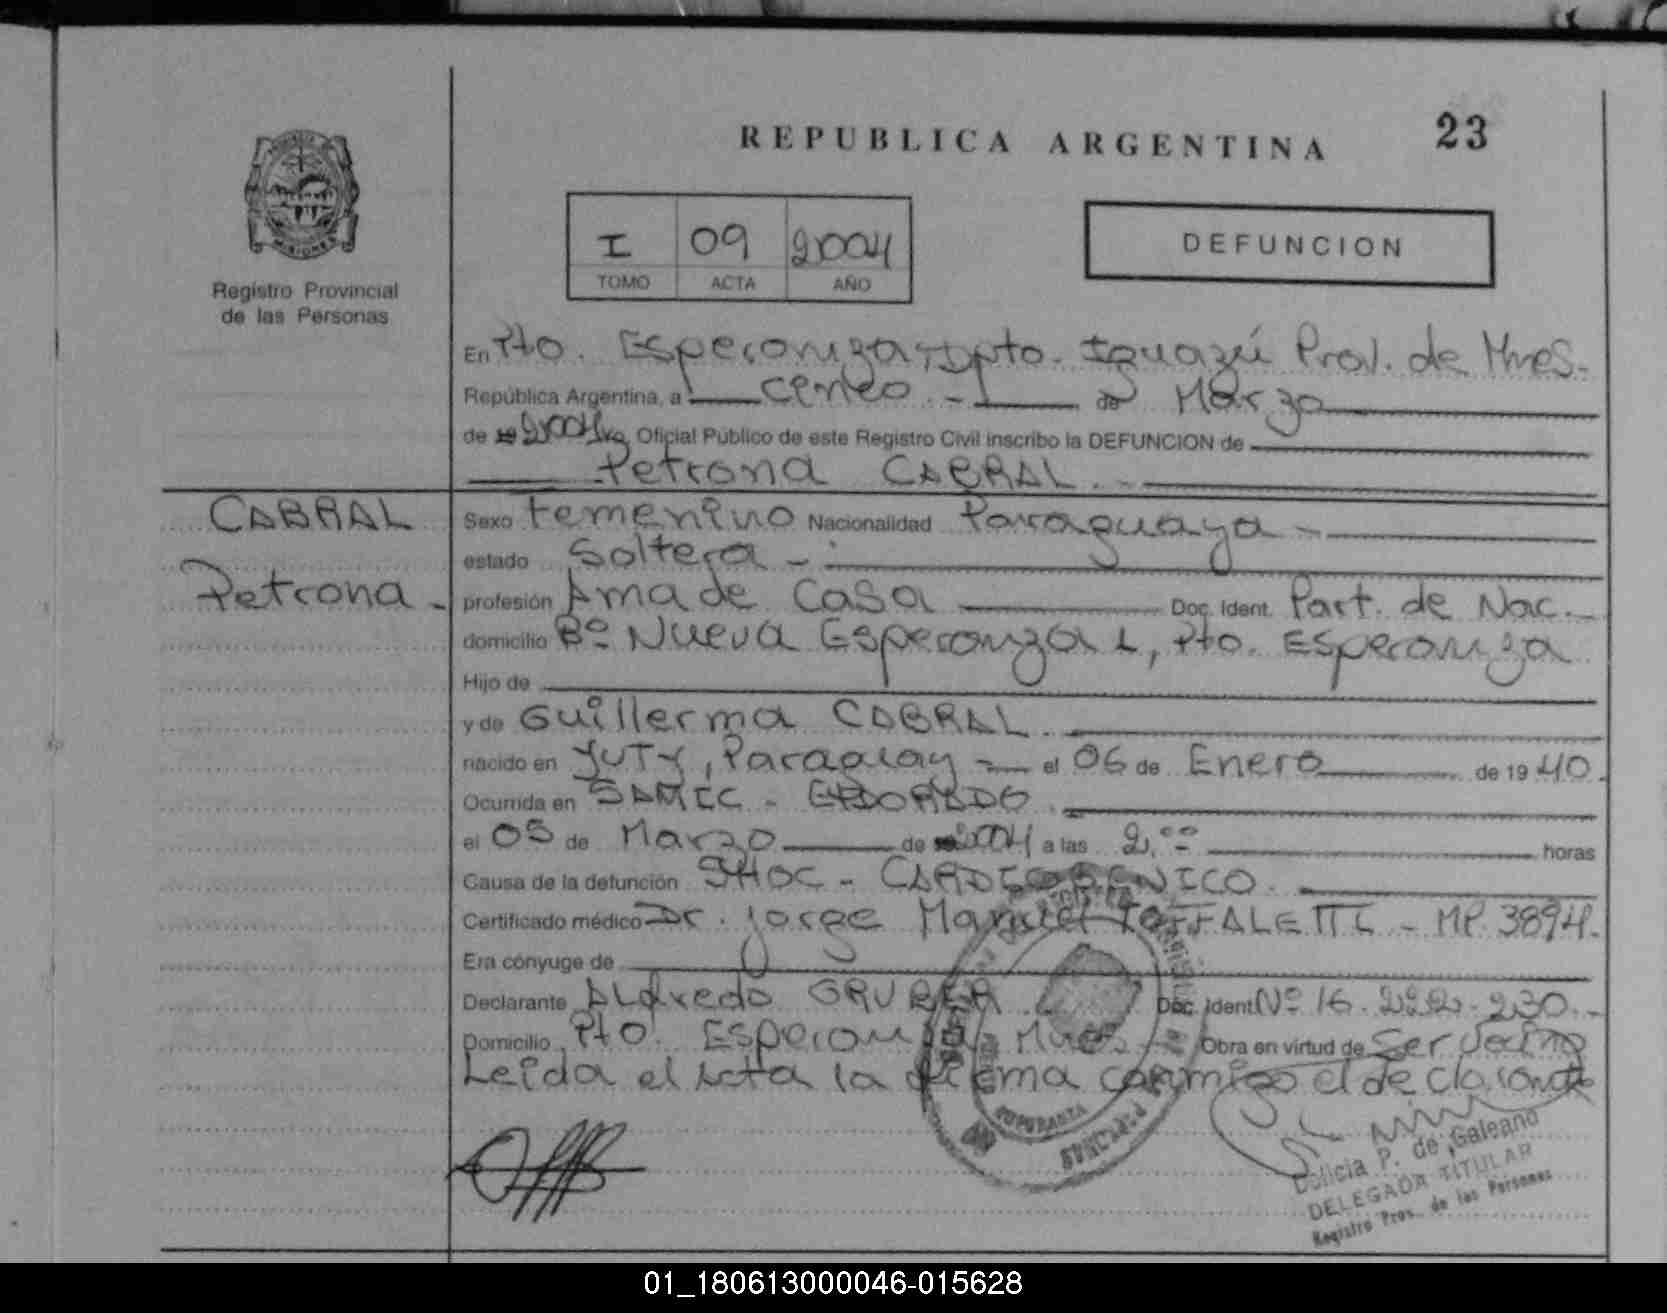 REPUBLICA ARGENTINA
23
I 09 2004
TOMO ACTA AÑO
DEFUNCION
MISIONES
Registro Provincial
de las Personas
En Pto. Esperanza, Dpto. Iguazú Prov. de Mnes.-
República Argentina, a cinco - de Marzo
de 19 2004 Yo, Oficial Público de este Registro Civil inscribo la DEFUNCION de
Petrona CABRAL.-
CABRAL
Petrona.-
Sexo Femenino Nacionalidad Paraguaya -
estado Soltera -.
profesión Ama de Casa Doc. Ident. Part. de Nac.-
domicilio Bº Nueva Esperanza 1, Pto. Esperanza
Hijo de
y de Guillerma CABRAL.
nacido en YUTY, Paraguay - el 06 de Enero de 19 40.
Ocurrida en SAMIC - ELDORADO.
el 05 de Marzo de 2004 a las 2.00 horas
Causa de la defunción SHOC - CARDIOGENICO.
Certificado médico Dr. Jorge Manuel TOFFALETTI - MP. 3894.
Era cónyuge de
Declarante Alfredo GRUBER. Doc. Ident Nº 16.222.230.-
Domicilio Pto. Esperanza Mnes. Obra en virtud de Ser Vecino
Leida el Acta la firma conmigo el declarante
ESPERANZA
PERSONAS
Dolicia P. de Galeano
DELEGADA TITULAR
Registro Prov. de las Personas
01_180613000046-015628